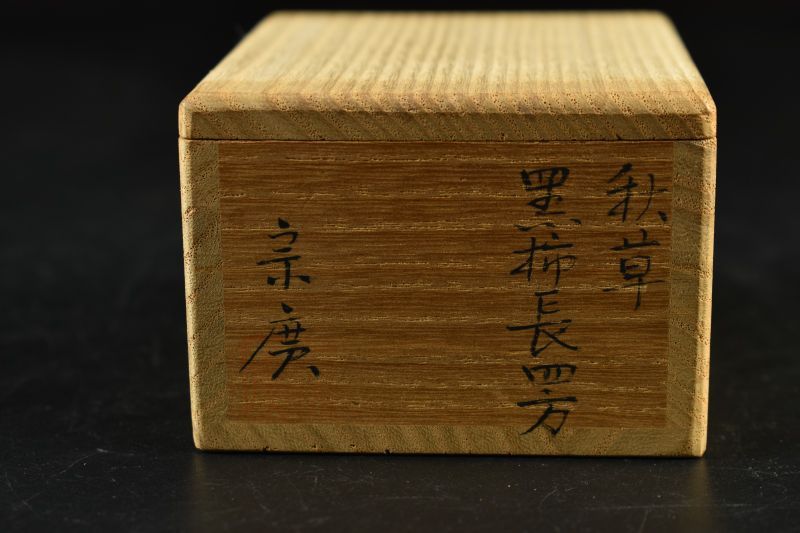 秋草
黒柿長四方
宗廣